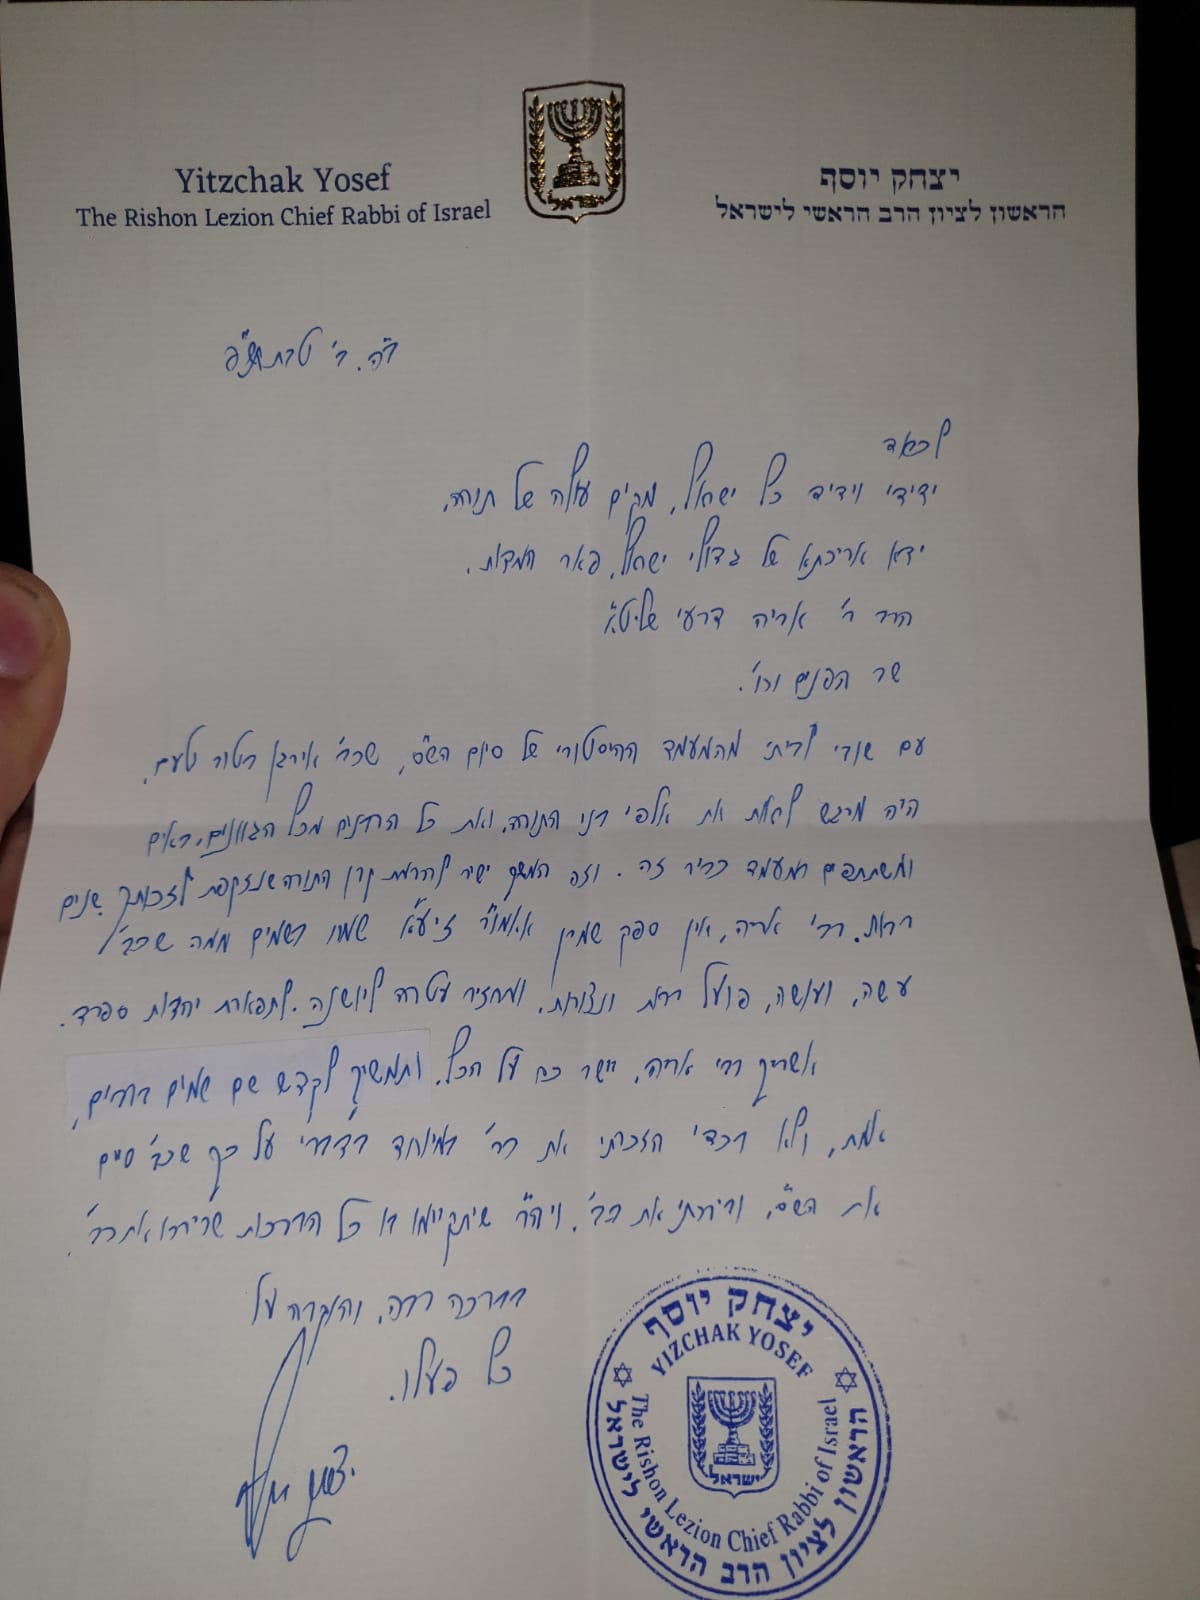 Yitzchak Yosef
The Rishon Lezion Chief Rabbi of Israel
ישראל
יצחק יוסף
הראשון לציון הרב הראשי לישראל
ב"ה. ב' טבת תש"פ
לכאד
ידידי וידיד כל ישראל, מקים עולה של תורה,
ידא אריכתא של גדולי ישראל, פאר המדות,
הרב ר' אריה דרעי שליט"א
שר הפנים וכו'.
עם שובי לביתי מהמעמד ההיסטורי של סיום הש"ס, שכב' אירגן בטוב טעם,
היה מרגש לראות את אלפי בני התורה, ואת כל הרבנים מכל הגוונים, באים
ומשתתפים במעמד כביר זה. וזה המשך ישיר להרמת קרן התורה שנזקפת לזכותך שנים
רבות. רבי אריה, אין ספק שמרן אאמו"ר זיע"א שמח בשמים ממה שכב'
עשה, ועושה, פועל רבות ונצורות, ומחזיר עטרה ליושנה. לתפארת יהדות ספרד.
אשריך רבי אריה, יישר כח על הכל. ותמשיך לקדש שם שמים ברבים,
אמת, ולא בכדי הזכרתי את כב' במיוחד בדברי על כך שכב' סיים
את הש"ס, וברכתי את כב', ויה"ר שיתקיימו בו כל הברכות שבירכו את כב'.
בברכה רבה, והוקרה על
כל פעלו.
יצחק יוסף
יצחק יוסף
YIZCHAK YOSEF
ישראל
The Rishon Lezion Chief Rabbi of Israel
הראשון לציון הרב הראשי לישראל